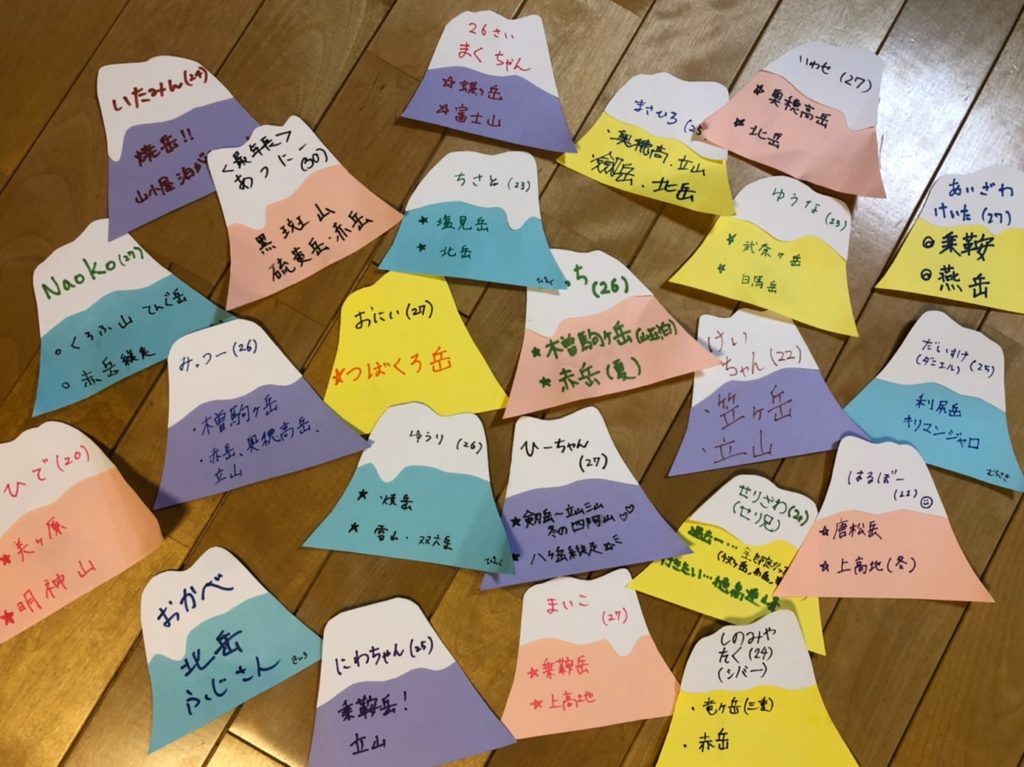 いたみん(24)
焼岳!!
山小屋泊
<最年長>
あっにー
(30)
黒斑山
硫黄岳 赤岳
26さい
まくちゃん
☆蝶ヶ岳
☆富士山
まさひろ(25
・奥穂高、立山
剱岳、北岳
いわせ(27)
★奥穂高岳
★北岳
ちさと(23)
★塩見岳
★北岳
ひろく
ゆうな(23)
☆武奈ヶ岳
☆白馬岳
あいざわ
けいた(27)
◎乗鞍
◎燕岳
Naoko(27)
○くろふ山 てんぐ岳
○赤岳縦走
みっつー(26)
・木曽駒ヶ岳
・赤岳、奥穂高岳、
立山
おにい(27)
★つばくろ岳
ち(26)
★木曽駒ヶ岳(山荘泊)
★赤岳(夏)
けい
ちゃん(22)
・笠ヶ岳
・立山
だいすけ
(ダニエル)(25)
利尻岳
キリマンジャロ
むらさき
ひで(20)
★美ヶ原
★明神山
ゆうり(26)
★焼岳
★雪山・双六岳
ひーちゃん
(27)
★剱岳〜立山三山
冬の四阿山♡♡
★八ヶ岳縦走
せりざわ
(せり兄)
過去…
行きたい…穂高連峰
はるぼー
☆唐松岳
☆上高地(冬)
おかべ
北岳
ふじさん
きいろ
にわちゃん(25)
乗鞍岳!
立山
まいこ
(27)
★乗鞍岳
★上高地
しのみや
たく(24)
(シバー)
・竜ヶ岳(三重)
・赤岳